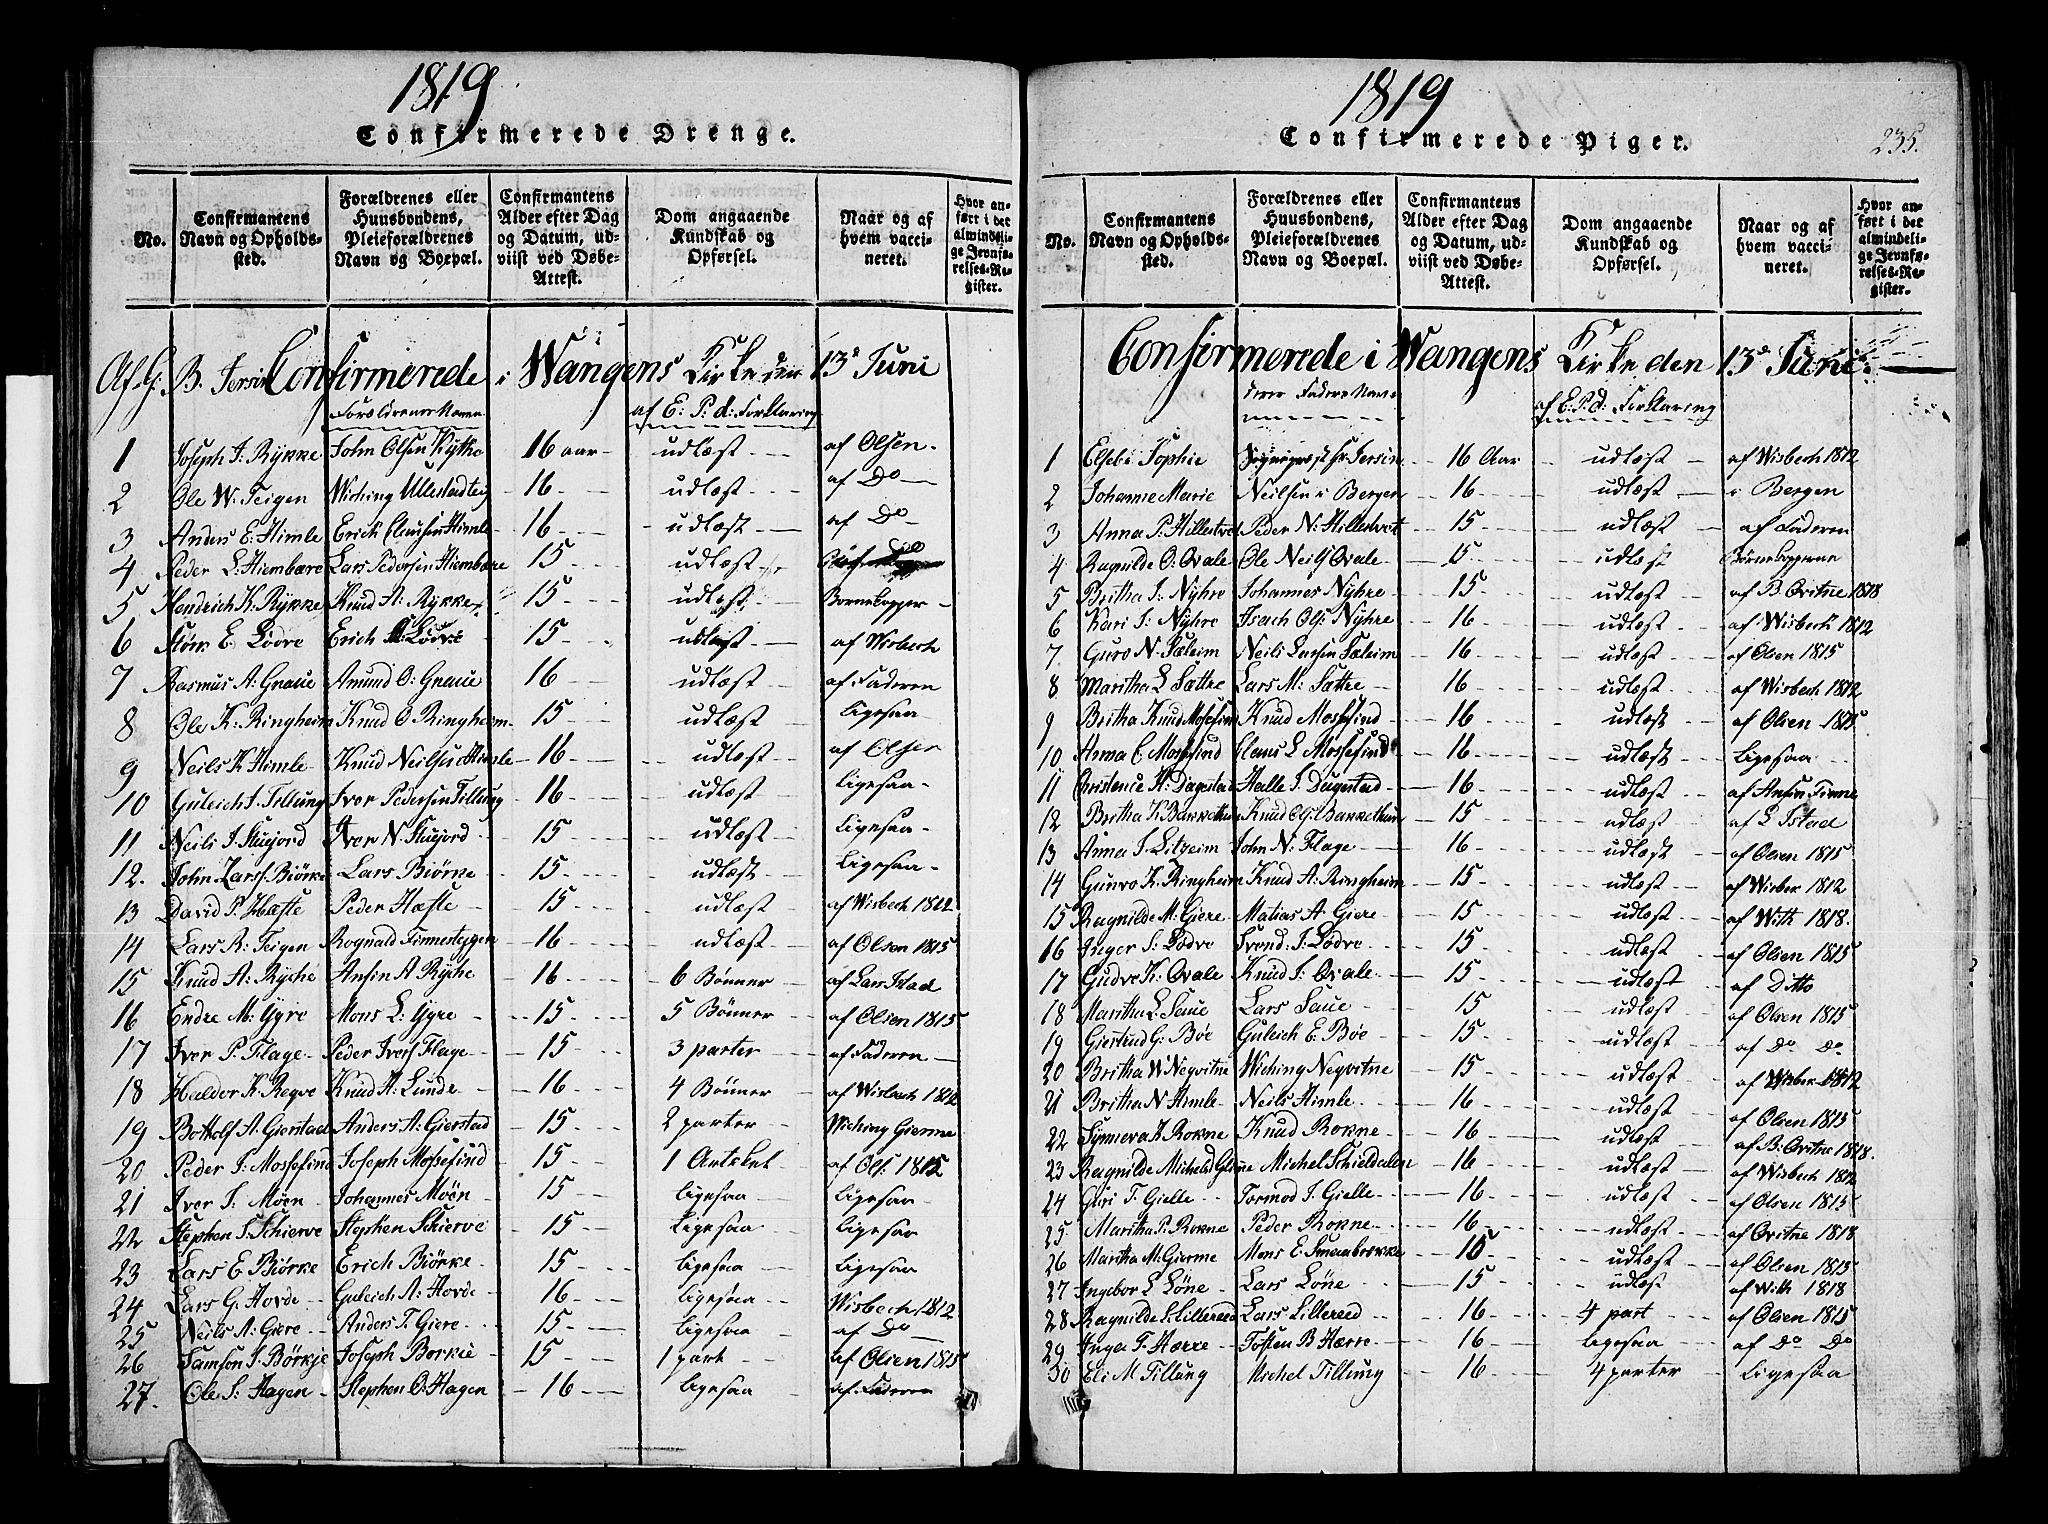 1819
Confirmerede Drenge.
No. | Confirmantens Navn og Opholdssted. | Forældrenes eller Huusbondens, Pleieforældrenes Navn og Boepæl. | Confirmantens Alder efter Dag og Datum, udviist ved Døbe-Attest. | Dom angaaende Kundskab og Opførsel. | Naar og af hvem vaccineret. | Hvor anført i det almindelige Jevnførelses-Register.
Af G: B. Jersin Confirmerede i Wangens Kirke den 13de Juni
Forældrenes Navne | af E: P. d: Forklaring
1 Joseph J: Rykke | John Olsen Kytho | 16 aar | udlæst | af Olsen
2 Ole W. Teigen | Wiching Ullestadteig | 16 | udlæst | af Do
3 Anders E. Himle | Erich Clausen Himle | 16 | udlæst | af Do
4 Peder L: Hiembære | Lars Pedersen Hiembære | 15 | udlæst | Do
5 Hendrich K. Rykke | Knud A: Rykke | 15 | udlæst | Børnekopper
6 Størk E. Lødve | Erich Lødve | 15 | udlæst | af Wisbech
7 Rasmus A: Graue | Amund O: Graue | 16 | udlæst | af Faderen
8 Ole K: Ringheim | Knud O Ringheim | 15 | udlæst | ligesaa
9 Neils K Himle | Knud Neilsen Himle | 16 | udlæst | af Olsen
10 Guleich I. Tillung | Iver Pedersen Tillung | 16 | udlæst | ligesaa
11 Neils I. Skiejord | Iver N. Skiejord | 15 | udlæst | ligesaa
12. John Larss. Biørke | Lars Biørke | 15 | udlæst | ligesaa
13 David P. Hæfte | Peder Hæfte | 15 | udlæst | af Wisbech 1812
14 Lars R: Teigen | Rognald Finnesteygen | 16 | udlæst | af Olsen 1815
15 Knud A: Ryche | Ansin A Ryche | 16 | 6 Bønner | af Lars Istad
16 Endre M: Gyre | Mons L: Gyre | 15 | 5 Bønner | af Olsen 1815
17 Iver P. Flage | Peder Ivers Flage | 15 | 3 parter | af Faderen
18 Haldor K. Regve | Knud H. Lunde | 16 | 4 Bønner | af Wisbech 1812
19 Bottolf A. Gierstad | Anders A: Gierstad | 15 | 2 parter | Wiching Gierme
20 Peder J: Mossefind | Joseph Mossefind | 15 | 1 Artikel | af Ols: 1815
21 Iver J. Møen | Johannes Møen | 15 | ligesaa | ligesaa
22 Stephen S. Schierve | Stephen Schierve | 15 | ligesaa | ligesaa
23 Lars E Biørke | Erich Biørke | 15 | ligesaa | ligesaa
24 Lars G: Hovde | Guleich A: Hovde | 16 | ligesaa | Wisbech 1812
25 Neils A: Giere | Anders T. Giere | 15 | ligesaa | af Do
26 Samson J. Børkje | Joseph Borkie | 15 | 1 part | af Olsen 1815
27. Ole S: Hagen | Stephen O: Hagen | 16 | ligesaa | af Faderen
1819
Confirmerede Piger.
235.
No. | Confirmantens Navn og Opholdssted. | Forældrenes eller Huusbondens, Pleieforældrenes Navn og Boepæl. | Confirmantens Alder efter Dag og Datum, udviist ved Døbe-Attest. | Dom angaaende Kundskab og Opførsel. | Naar og af hvem vaccineret. | Hvor anført i det almindelige Jevnførelses-Register.
Confirmerede i Wangens Kirke den 13de Juni
deres Faders Navn | af E. P. d: Forklaring
1 Elsebe Sophie | Sogneprest Hr Jersin | 16 Aar | udlæst | af Wisbech 1812
2 Johanne Marie | Neilsen i Bergen | 16 | udlæst | i Bergen
3 Anna P. Hillestvet | Peder N: Hillestvet | 15 | udlæst | af Faderen
4 Ragnilde O: Qvale | Ole Neils Qvale | 15 | udlæst | Børnekopperne
5 Britha J: Nyhre | Johannes Nyhre | 15 | udlæst | af B. Qvitne 1818
6 Kari I: Nyhre | Isach Ols: Nyhre | 16 | udlæst | af Wisbech 1812
7 Guro N. Sæleim | Neils Larsen Sæleim | 16 | udlæst | af Olsen 1815
8 Maritha L Sættre | Lars M: Sættre | 16 | udlæst | af Wisbech 1812
9 Britha Knud Mossefind | Knud Mossefind | 16 | udlæst | af Olsen 1815
10 Anna C Mossefind | Claus L Mossefind | 16 | udlæst | ligesaa
11 Christence H. Dagestad | Halle I. Dagestad | 16 | udlæst | af Ansin Finne
12 Britha K Bakkethun | Knud Ols: Bakkethun | 15 | udlæst | af L Istad
13 Anna J. Litzeim | John N: Flage | 16 | udlæst | af Olsen 1815
14 Gunvo K. Ringheim | Knud A: Ringheim | 15 | udlæst | af Wisbek 1812
15 Ragnilde M: Giere | Matias A: Giere | 15 | udlæst | af With 1818.
16 Inger S: Lødve | Svend: I: Lødve | 15 | udlæst | af Olsen 1815
17 Gudve K: Qvale | Knud I: Qvale | 15 | udlæst | af Ditto
18 Maritha L. Saue | Lars Saue | 15 | udlæst | af Olsen 1815
19 Giertrud G: Bøe | Guleich E. Bøe | 15 | udlæst | af Do Do
20 Britha W Neqvitne | Wiching Neqvitne | 15 | udlæst | af Wisbek 1812
21 Britha N Himle | Neils Himle | 16 | udlæst | af Olsen 1815
22 Synneva K Rokne | Knud Rokne | 16 | udlæst | af B: Qvitne 1818.
23 Ragnilde Michelsd | Michel Schieldalen | 16 | udlæst | af Wisbech 1812
24 Guri T. Gielle | Tormod I. Gielle | 16 | udlæst | af Olsen 1815
25. Maritha P. Rokne | Peder Rokne | 16 | udlæst | af Qvitne 1818
26 Maritha M: Gierme | Mons E. Smaabrække | 15 | udlæst | af Olsen 1815
27 Ingebor L Løne | Lars Løne | 15 | udlæst | af With 1818
28 Ragnilde L. Lillereed | Lars Lillereed | 16 | 4 part | af Olsen 1815
29 Inga T. Hærre | Tosten B Hærre | 16 | ligesaa | af Do Do
30 Eli M Tillung | Michel Tillung | 16 | 4 parter | ligesaa